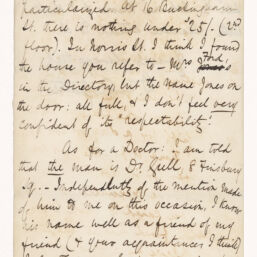 particularized. At 16 Buckingham
St. there is nothing under 25/. (2nd
floor). In Norris St. I think I found
the house you refer to – Mrs Ford's
in the Directory, but the name Jones on
the door: all full, & I don't feel very
confident of its "respectability".
As for a Doctor: I am told
that the man is Dr. Gull, 8 Finsbury
Sq. – Independently of the mention made
of him to me on this occasion, I know
his name well as a friend of my
friend (& your acquaintances I think)